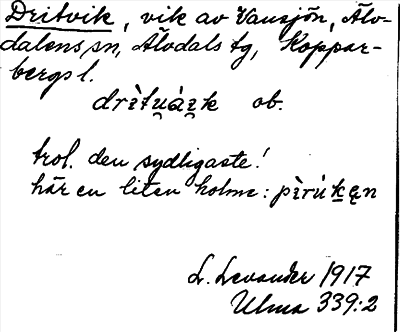 Dritvik, vik av Vansjön, Älv-
dalens sn, Älvdals tg, Koppar-
bergs l.
drìtu̯áz̯k ob.
trol. den sydligaste!
här en liten holme: pìrúkęn
L. Levander 1917
Ulma 339:2